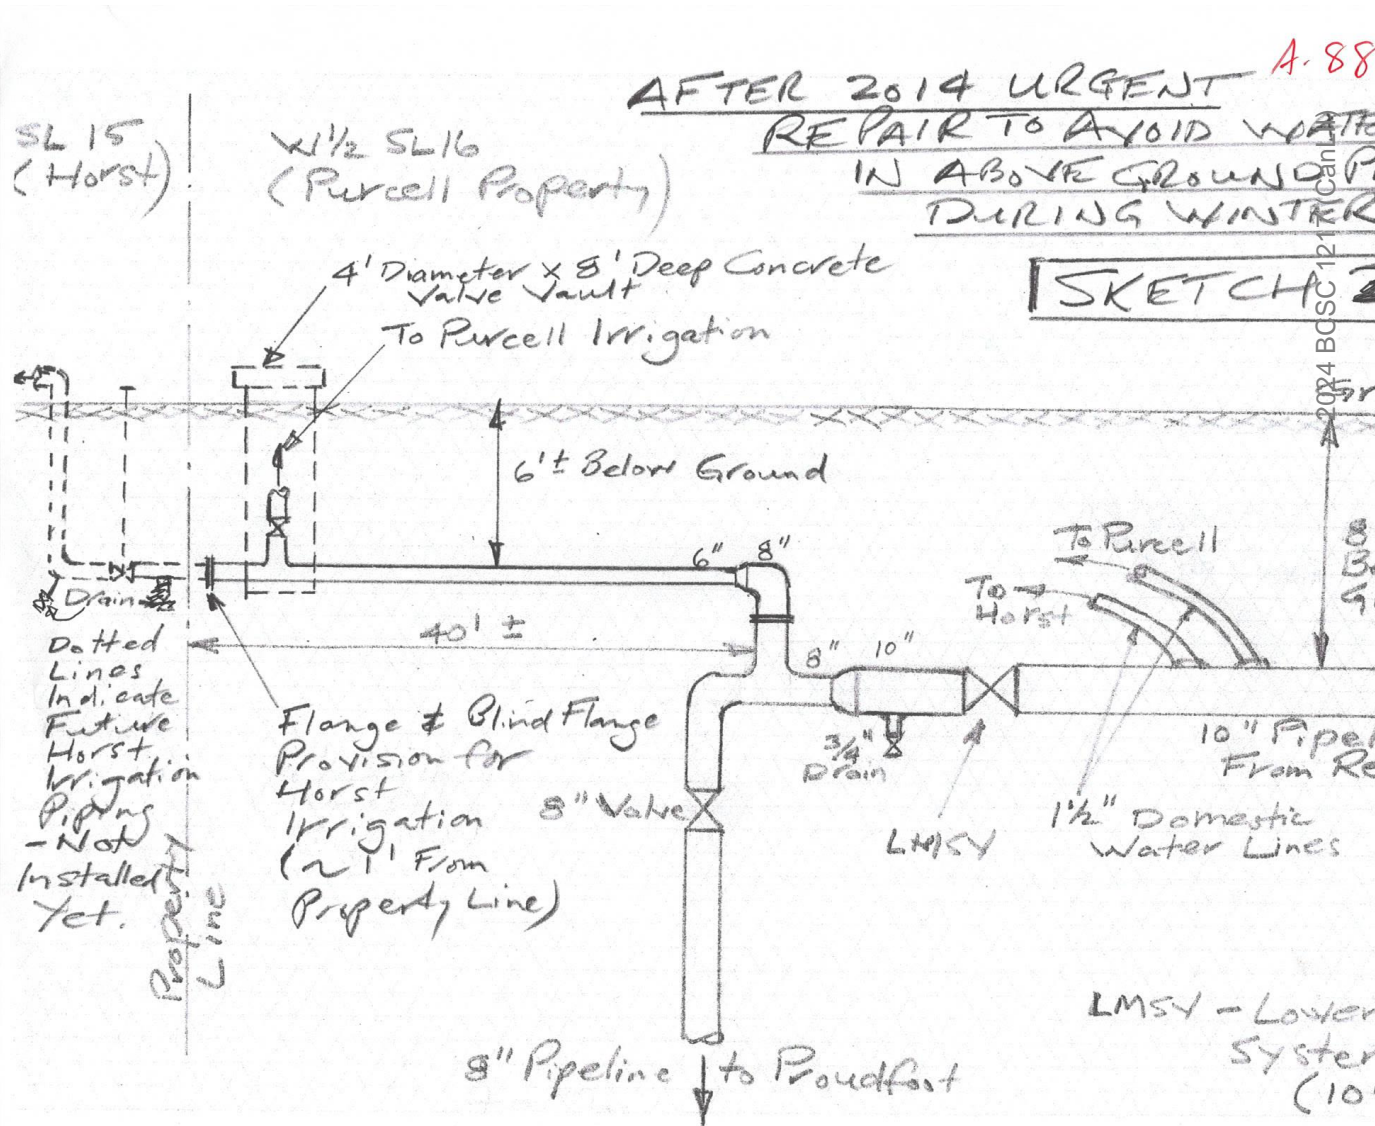 A.88
AFTER 2014 URGENT
REPAIR TO AVOID WATE
IN ABOVE GROUND P
DURING WINTER
SKETCH
2024 BCSC 121 (CanL
SL 15
(Horst)
W1½ SL16
(Purcell Property)
4' Diameter x 8' Deep Concrete
Valve Vault
To Purcell Irrigation
Gr
6'± Below Ground
6"
8"
To Purcell
To
Horst
8
B
9
Drain
40' ±
8"
10"
Dotted
Lines
Indicate
Future
Horst
Irrigation
Piping
- Not
Installed
Yet.
Property
Line
Flange & Blind Flange
Provision for
Horst
Irrigation
(~ 1' From
Property Line)
8" Valve
3/4"
Drain
LMSY
10" Pipel
From Re
1½" Domestic
Water Lines
LMSY - Lower
System
(10"
8" Pipeline to Proudfoot